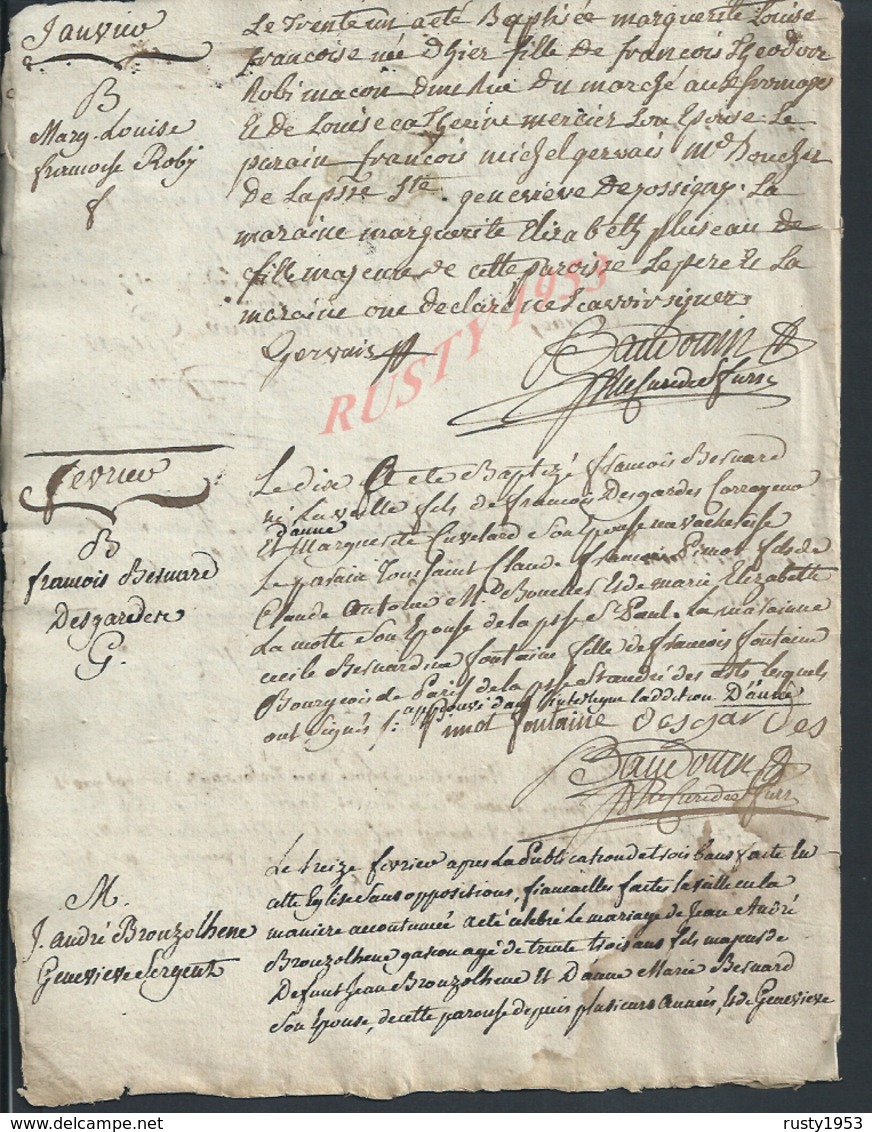 Janvier
B
Marg. Louise
francoise Robij
f
Le Trente un a eté Baptisée marguerite Louise
francoise née d'hier fille de francois Theodore
Robi macon dme Rue du marché aux fromages
Et de Louise catherine mercier son Epouse Le
parain francois michel gervais Md Boucher
de La psse Ste. genevieve La
maraine marguerite Elizabeth pluseau de
fille majeure de cette paroisse Le pere Et La
maraine ont declaré ne scavoir signer
Gervais
Baudouin
RUSTY 1953
fevrier
B
francois Bernard
Desgardes
G.
Le dix a ete Baptizé francois Bernard
né La veille fils de francois Desgardes
d'anne
Et Marguerite Cuvelard son Epouse
Le parain Toussaint Claude francois Pimot fils de
Claude Antoine Md Boucher Et de marie Elizabeth
La motte son Epouse de la psse St Paul. La maraine
cecile Bernardine fontaine fille de francois fontaine
Bourgeois de Paris de la psse St andré des arts lesquels
ont signés approuvé dans l'interligne l'addition D'anne
Pimot fontaine desgardes
Baudouin
M.
J. andré Bronzolhene
Genevieve Sergent
Le treize fevrier apres La Publication de trois bans faite en
cette Eglise sans oppositions, fiancailles faites la veille en la
maniere accoutumée a eté célebré Le mariage de Jean André
Bronzolhene gascon agé de trente trois ans fils majeur de
Defunt Jean Bronzolhene Et D'anne Marie Bernard
son Epouse, de cette paroisse depuis plusieurs années, Et de Genevieve
rusty1953